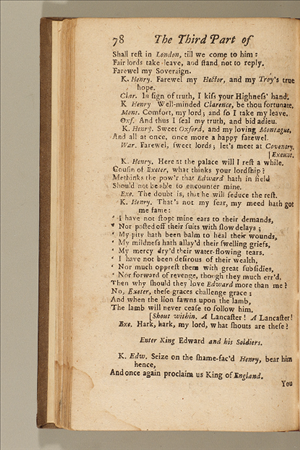 78 The Third Part of
Shall reſt in London, till we come to him:
Fair lords take leave, and ſtand not to reply.
Farewel my Sovereign.
K. Henry. Farewel my Hector, and my Troy's true
hope.
Clar. In ſign of truth, I kiſs your Highneſs' hand.
K Henry Well-minded Clarence, be thou fortunate.
Mont. Comfort, my lord; and ſo I take my leave.
Oxf. And thus I ſeal my truth, and bid adieu.
K. Henry. Sweet Oxford, and my loving Montague,
And all at once, once more a happy farewel.
War. Farewel, ſweet lords; let's meet at Coventry.
[Exeunt.
K. Henry. Here at the palace will I reſt a while.
Couſin of Exeter, what thinks your lordſhip?
Methinks the pow'r that Edward hath in field
Should not be able to encounter mine.
Exe. The doubt is, that he will ſeduce the reſt.
K. Henry. That's not my fear, my meed hath got
me fame:
' I have not ſtopt mine ears to their demands,
' Nor poſted off their ſuits with ſlow delays;
' My pity hath been balm to heal their wounds,
' My mildneſs hath allay'd their ſwelling griefs,
' My mercy dry'd their water-flowing tears.
' I have not been deſirous of their wealth,
' Nor much oppreſt them with great ſubſidies,
' Nor forward of revenge, though they much err'd.
Then why ſhould they love Edward more than me?
No, Exeter, theſe graces challenge grace;
And when the lion fawns upon the lamb,
The lamb will never ceaſe to follow him.
[Shout within. A Lancaſter! A Lancaſter!
Exe. Hark, hark, my lord, what ſhouts are theſe?
Enter King Edward and his Soldiers.
K. Edw. Seize on the ſhame-fac'd Henry, bear him
hence,
And once again proclaim us King of England.
You